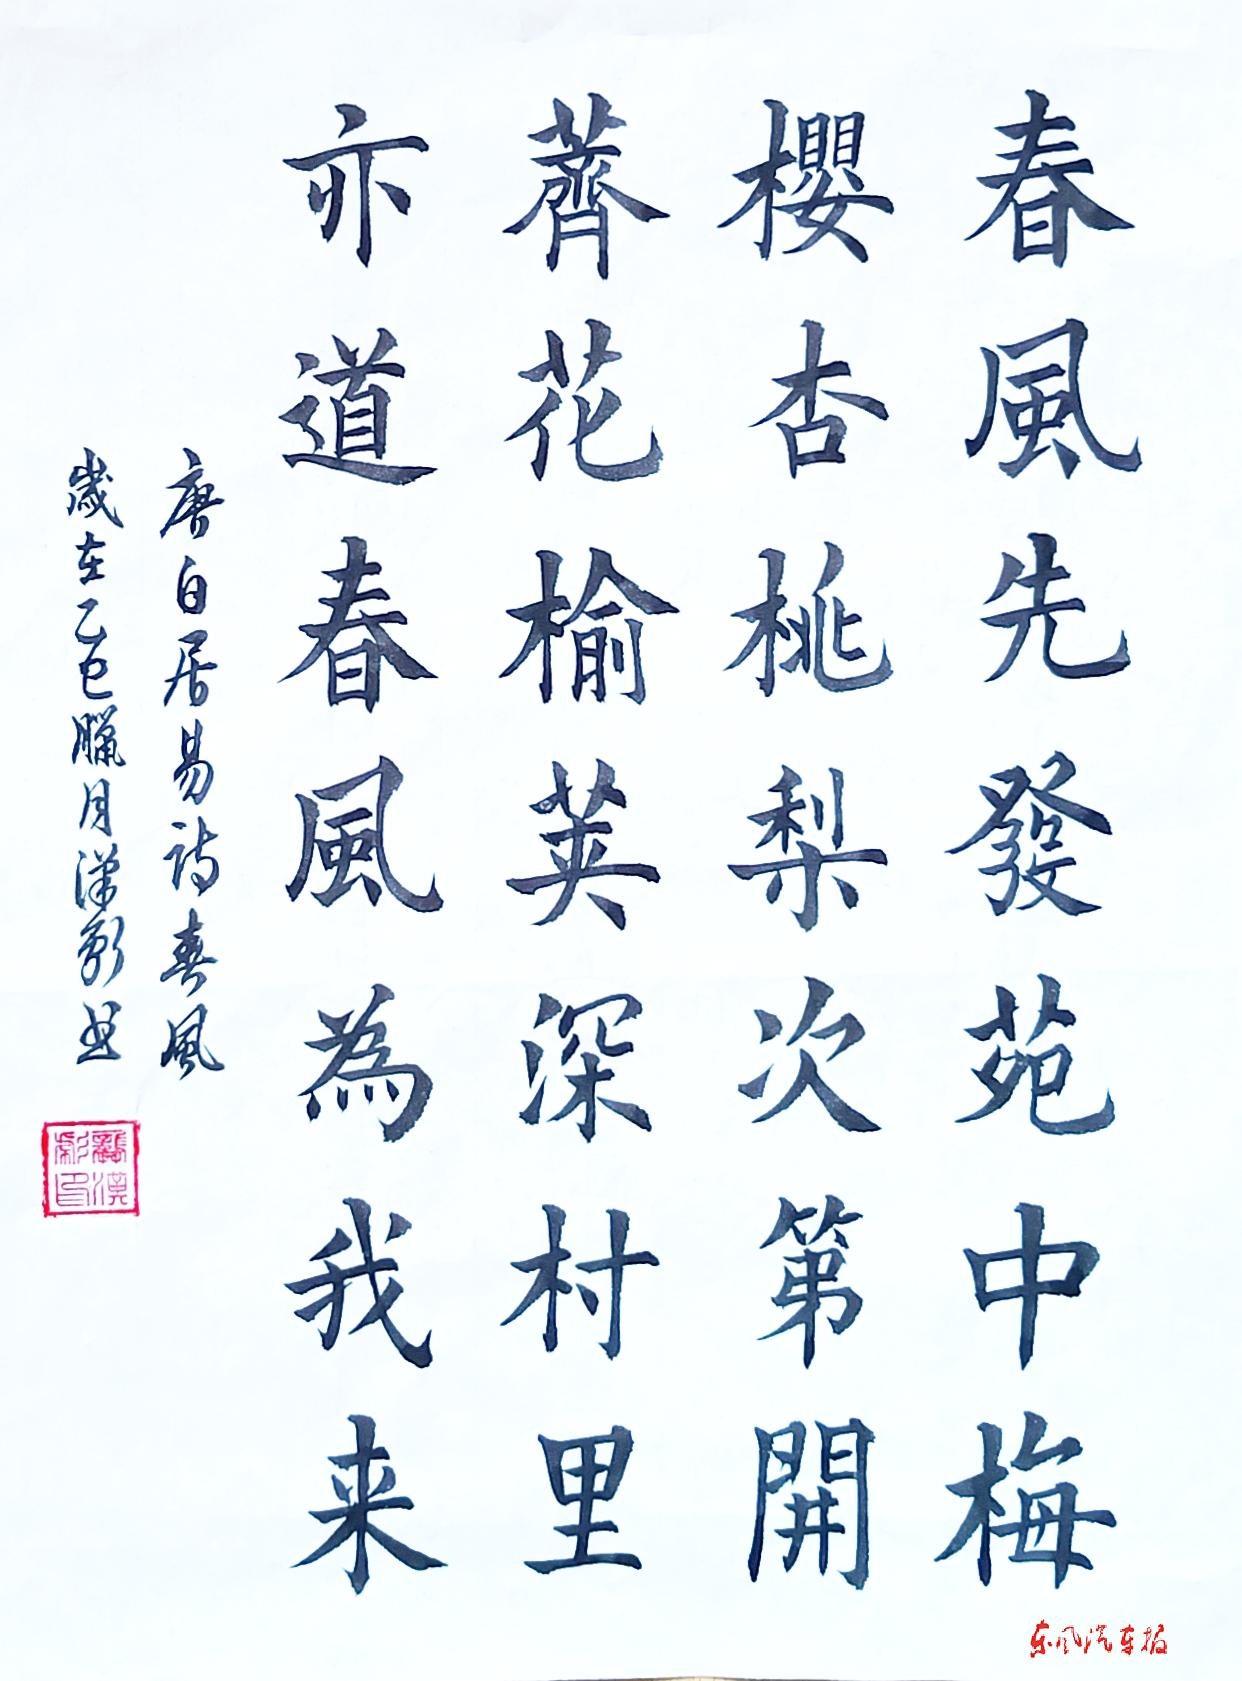 春風先發苑中梅
櫻杏桃梨次第開
薺花榆莢深村里
亦道春風為我来
唐白居易诗春風
歲在乙巳臘月漢彰书
东风汽车报